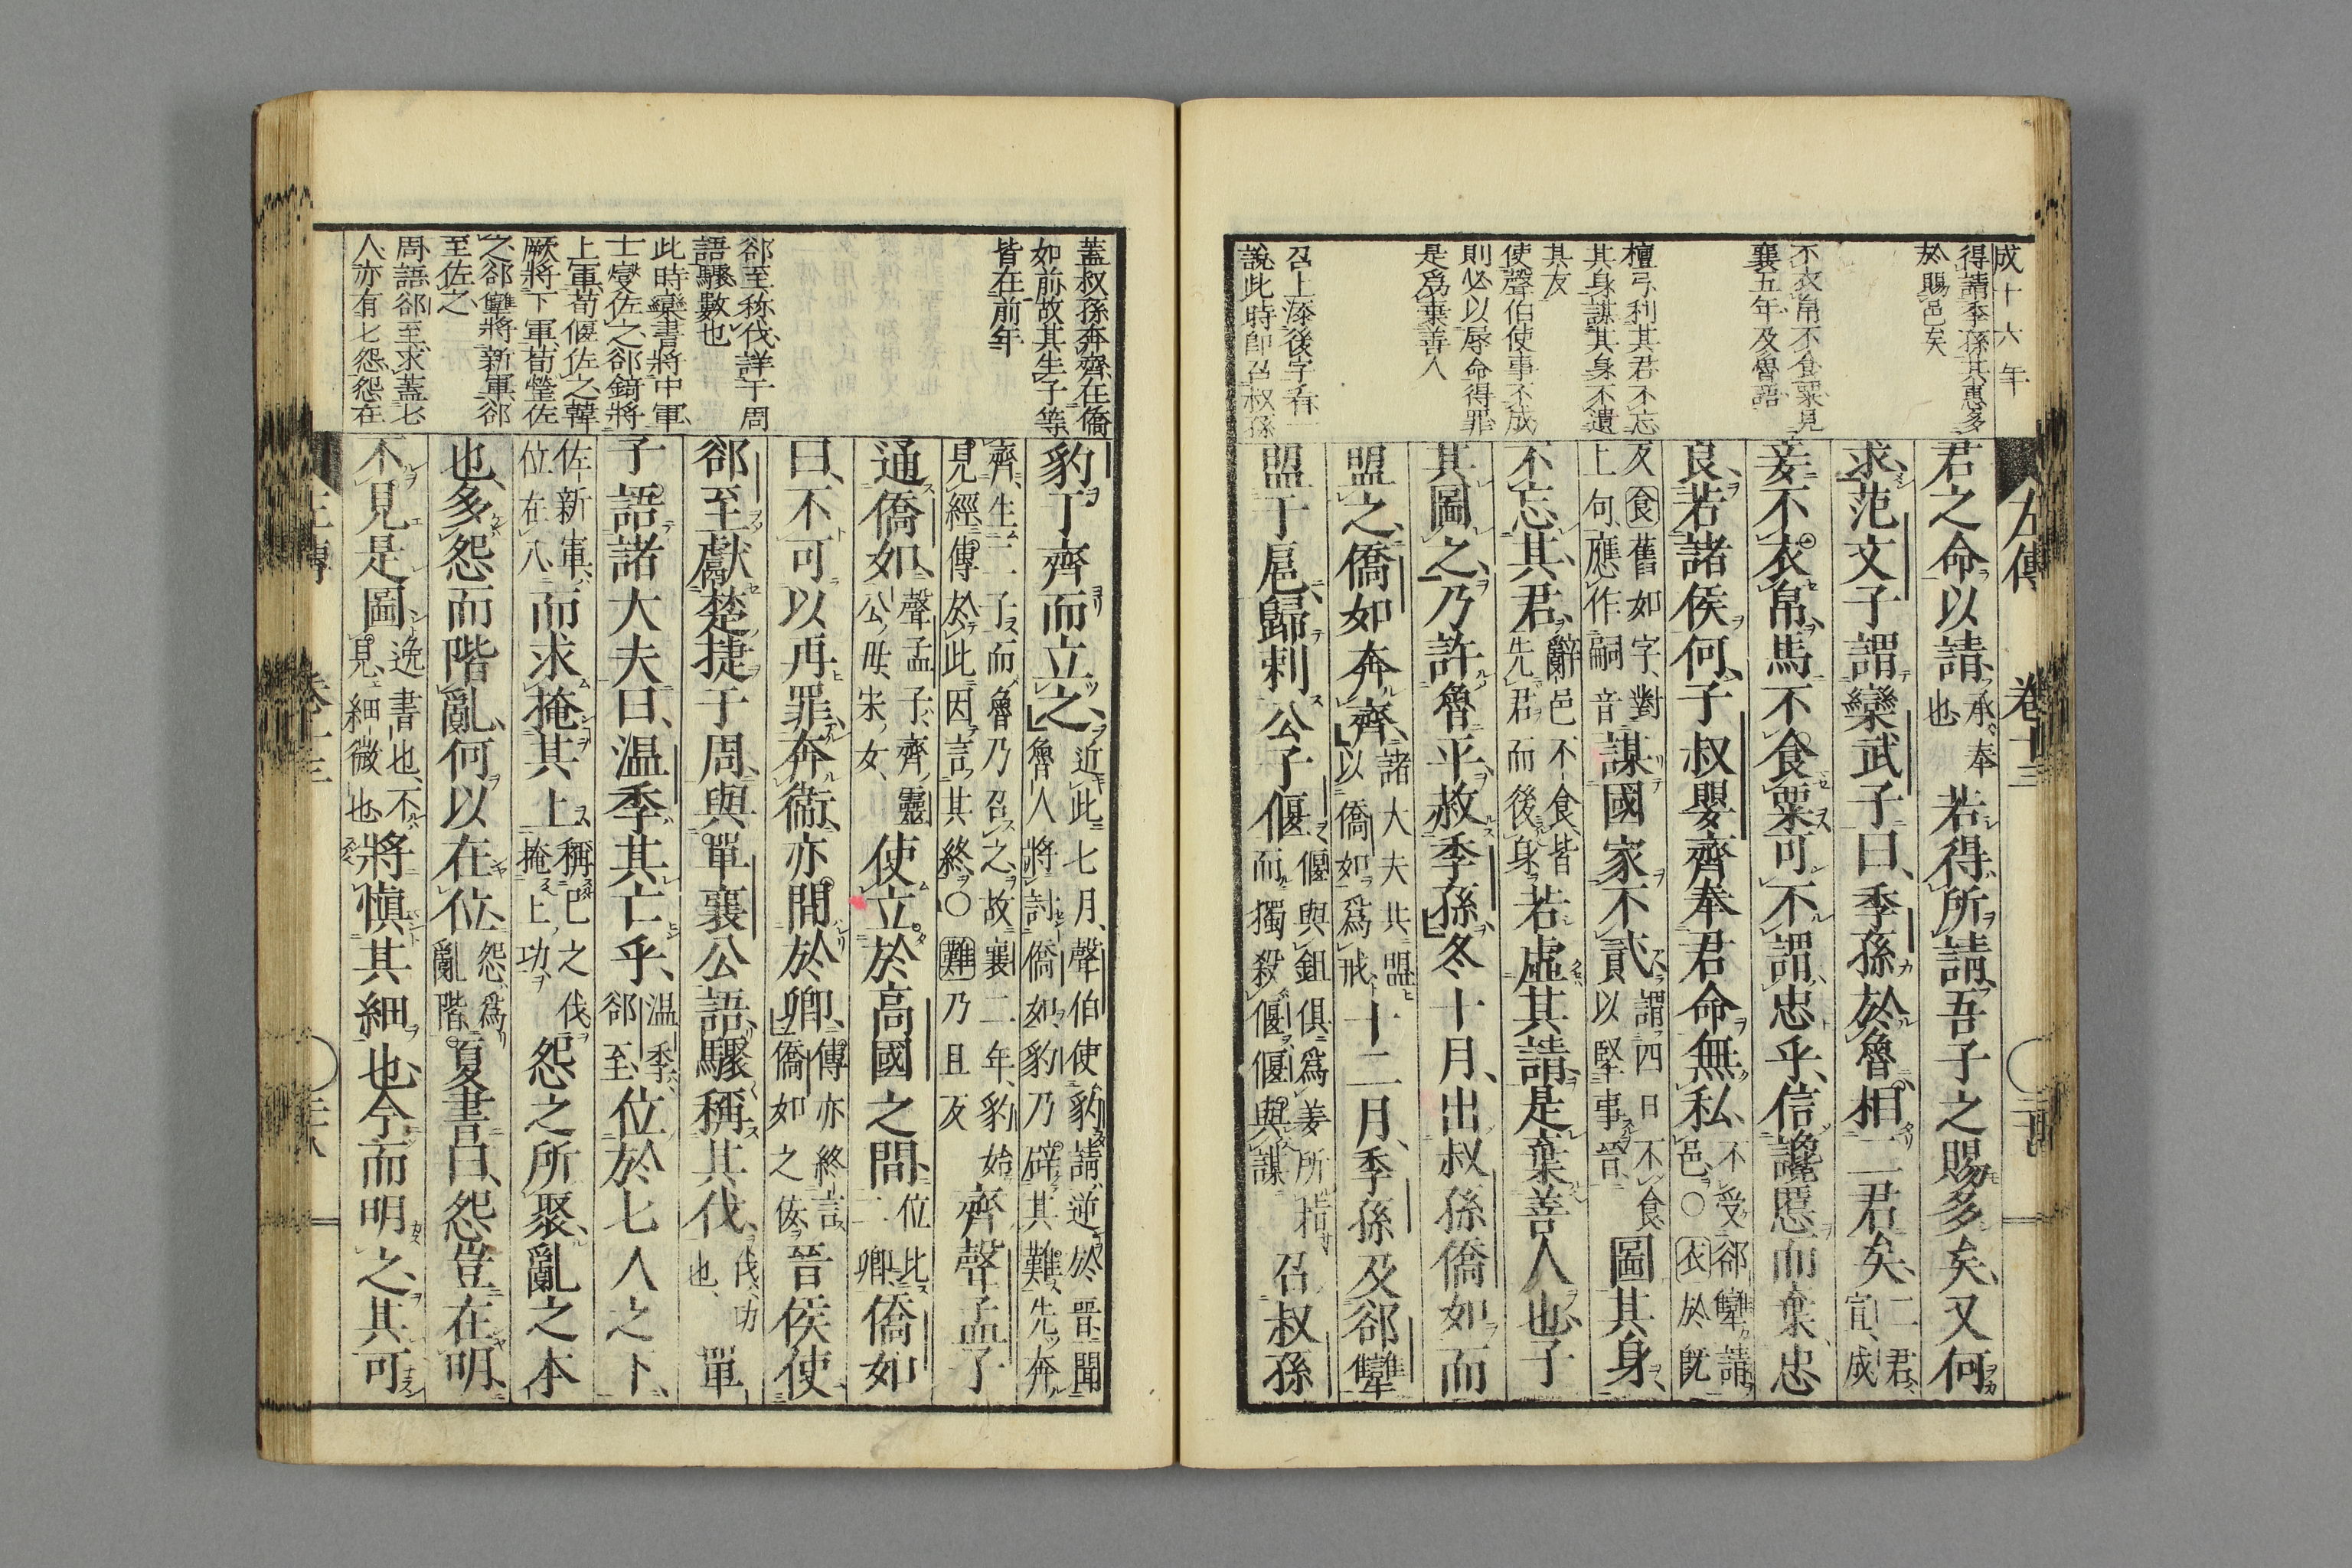 成十六年
得請季孫其惠多
於賜邑矣
不衣帛不食粟見
襄五年及魯語
檀弓利其君不忘
其身謀其身不遺
其友
使聲伯使事不成
則必以辱命得罪
是爲棄善人
召上添後字看
說此時卽召叔孫
左傳 卷十三
君之命以請承奉也若得所請吾子之賜多矣又何
求范文子謂欒武子曰季孫於魯相二君矣二君宣成
妾不衣帛馬不食粟可不謂忠乎信讒慝而棄忠
良若諸侯何子叔嬰齊奉君命無私不受郤犫請邑○衣於旣
反食舊如字對上句應作嗣音謀國家不貳謂四日不食以堅事晉圖其身
不忘其君辭邑不食皆先君而後身若虛其請是棄善人也子
其圖之乃許魯平赦季孫冬十月出叔孫僑如而
盟之僑如奔齊諸大夫共盟以僑如爲戒十二月季孫及郤犫
盟于扈歸刺公子偃偃與鉏俱爲姜所指而獨殺偃偃與謀召叔孫
蓋叔孫奔齊在僑
如前故其生子等
皆在前年
郤至稱伐詳于周
語驟數也
此時欒書將中軍
士燮佐之郤錡將
上軍荀偃佐之韓
厥將下軍荀罃佐
之郤犫將新軍郤
至佐之
周語郤至求蓋七
人亦有七怨怨在
豹于齊而立之近此七月聲伯使豹請逆於晉聞魯人將討僑如豹乃辟其難先奔
齊生二子而魯乃召之故襄二年豹始見經傳於此因言其終○難乃且反齊聲孟子
通僑如聲孟子齊靈公母宋女使立於高國之閒位比二卿僑如
曰不可以再罪奔衞亦閒於卿傳亦終言僑如之佞晉侯使
郤至獻楚捷于周與單襄公語驟稱其伐伐功也單
子語諸大夫曰温季其亡乎温季郤至位於七人之下
佐新軍位在八而求掩其上稱己之伐掩上功怨之所聚亂之本
也多怨而階亂何以在位怨爲亂階夏書曰怨豈在明
不見是圖逸書也不見細微也將愼其細也今而明之其可